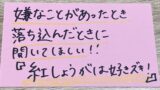 嫌なことがあったとき
落ち込んだときに
聞いてほしい!!
『紅しょうがは好きズキ!』